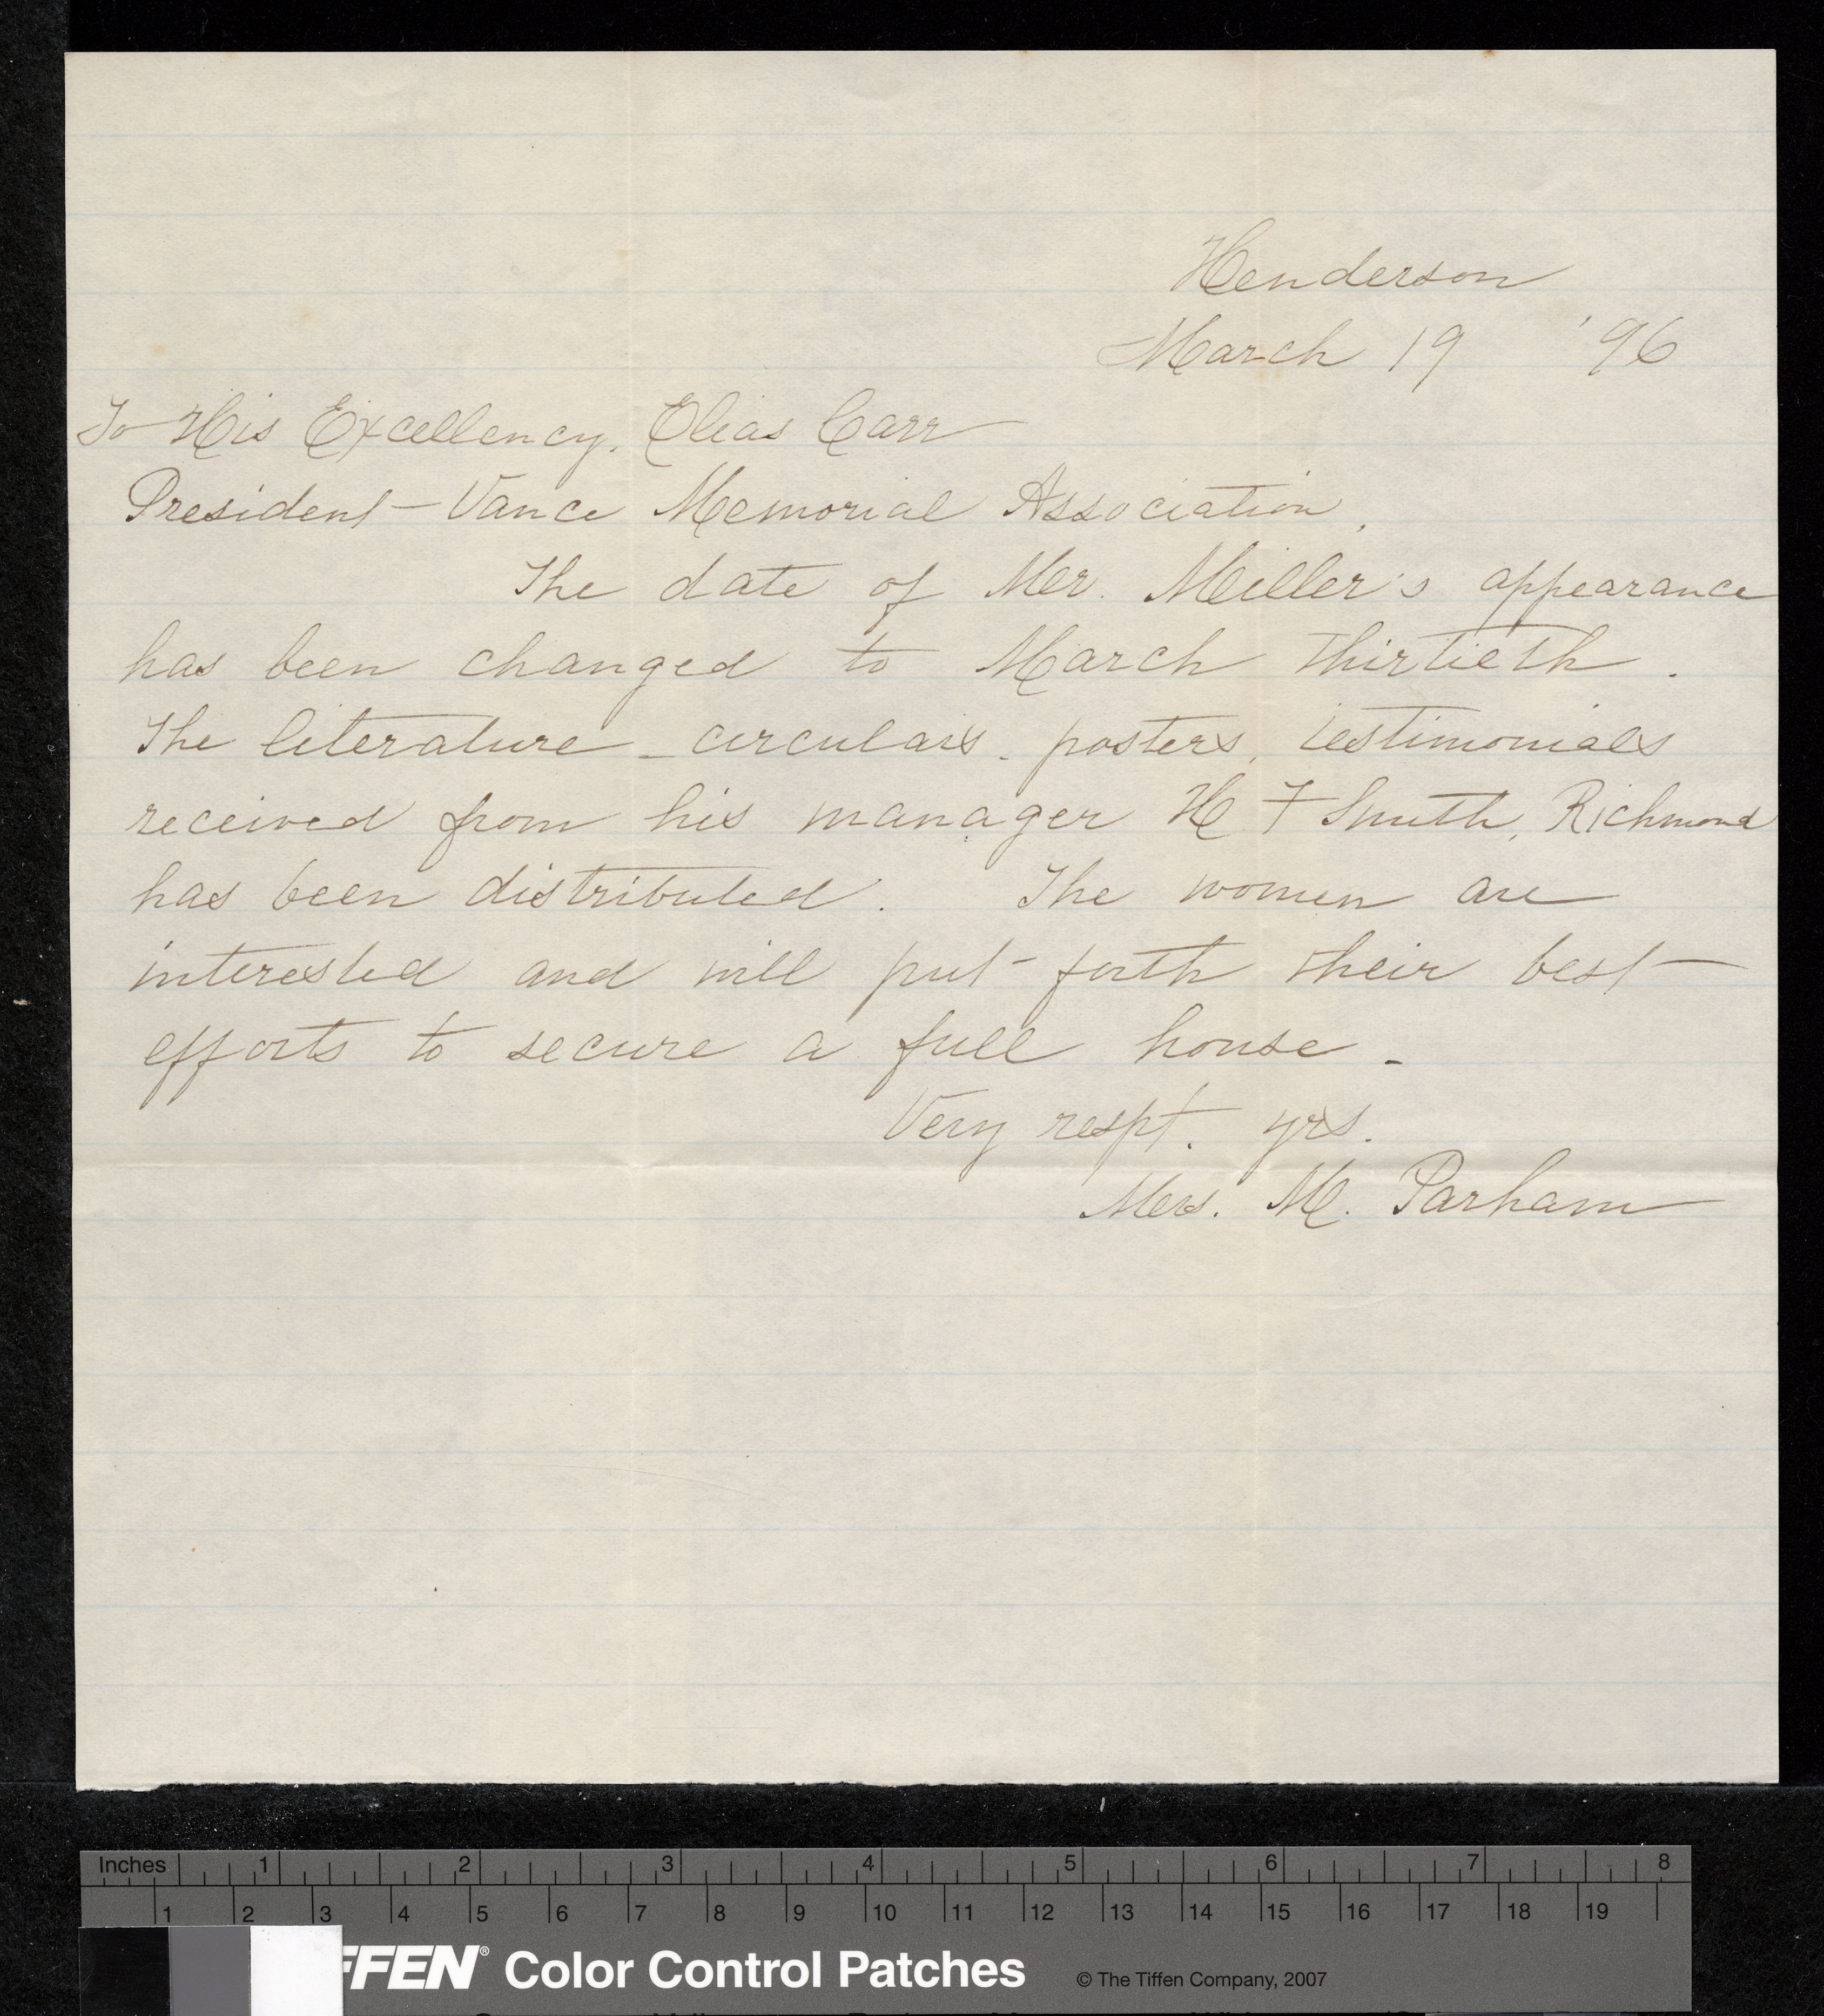 Henderson
March 19 '96
To His Excellency, Elias Carr
President - Vance Memorial Association,
The date of Mr. Miller's appearance
has been changed to March thirtieth.
The literature - circulars - posters, testimonials
received from his manager H F Smith, Richmond
has been distributed. The women are
interested and will put forth their best
efforts to secure a full house -
Very respt. yrs.
Mrs. M. Parham
Inches 1 2 3 4 5 6 7 8
1 2 3 4 5 6 7 8 9 10 11 12 13 14 15 16 17 18 19
FFEN® Color Control Patches © The Tiffen Company, 2007